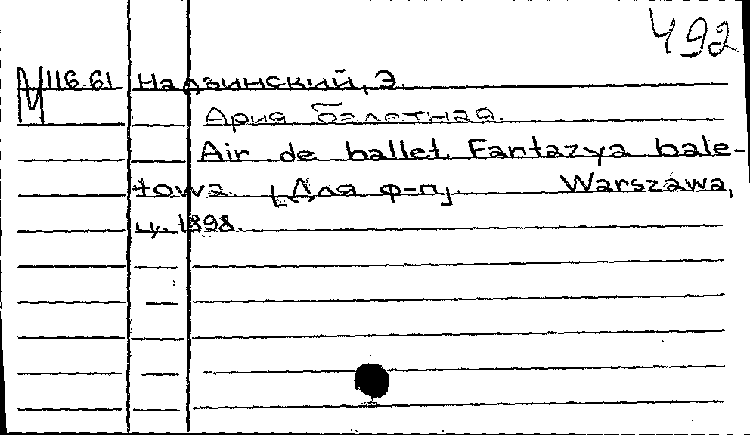 492
М 116.61 Надзинский, Э.
Ария балетная.
Air de ballet. Fantazya bale-
towa. [Для ф-п]. Warszawa,
ц. 1898.